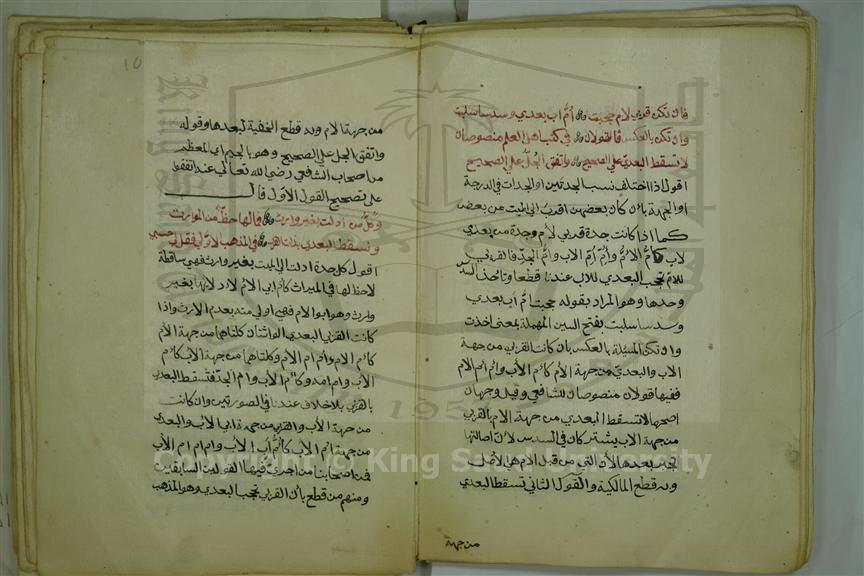 فان تكن قربى لام حجبت أم اب بعدى وسدسا سلبت
وان تكن بالعكس فالقولان في كتب اهل العلم منصوصان
لا تسقط البعدى على الصحيح واتفق الجل على التصحيح
اقول اذا اختلف نسب الجدتين او الجدات في الدرجة
او الجهة بان كان بعضهن اقرب الى الميت من بعض
كما اذا كانت جدة قربى لام وجدة من بعدى
لاب كأم الام وأم أم الاب وام الجد فالقربى
للام تحجب البعدى للاب عندنا قطعا وتاخذ السدس
وحدها وهو المراد بقوله حجبت ام اب بعدى
وسدسا سلبت بفتح السين المهملة بمعنى اخذت
وان تكن المسئلة بالعكس بان كانت القربى من جهة
الاب والبعدى من جهة الأم كام الاب وام ام الام
ففيها قولان منصوصان للشافعي وقيل وجهان
اصحهما لا تسقط البعدى من جهة الام بالقربى
من جهة الاب يشتركان في السدس لان اصالتها
تجبر بعدها لأن التي من قبل الام هي الاصل
وبه قطع المالكية والقول الثاني تسقط البعدى
من جهة
10
من جهة الام وبه قطع الحنفية لبعدها وقوله
واتفق الجل على التصحيح وهو بالجيم اي المعظم
من اصحاب الشافعي رضي الله تعالى عنه اتفقوا
على تصحيح القول الاول قال
وكل من ادلت بغير وارث فمالها حظ من الموارث
وتسقط البعدى بذات القرب في المذهب الاولى فقل لي حسبي
اقول كل جدة ادلت الى الميت بغير وارث فهي ساقطة
لاحظ لها في الميراث كام ابي الام لادلائها بغير
وارث وهو ابو الام فهي اولى منه بعدم الارث واذا
كانت القربى والبعدى الوارثتان كلتاهما من جهة الأم
كام الام وام ام الام وكلتاهما من جهة الاب كام
الاب وام امه وكام الاب وام الجد فتسقط البعدى
بالقربى بلا خلاف عندنا في الصورتين وان كانت
من جهة الأب والقربى من جهة ابي الاب والبعدى
من جهة ام الاب كأم أب الأب وام ام ام الأب
فمن اصحابنا من اجرى فيها القولين السابقين
ومنهم من قطع بأن القربى تحجب البعدى وهو المذهب
Copyright © King Saud University
King Saud University
1957